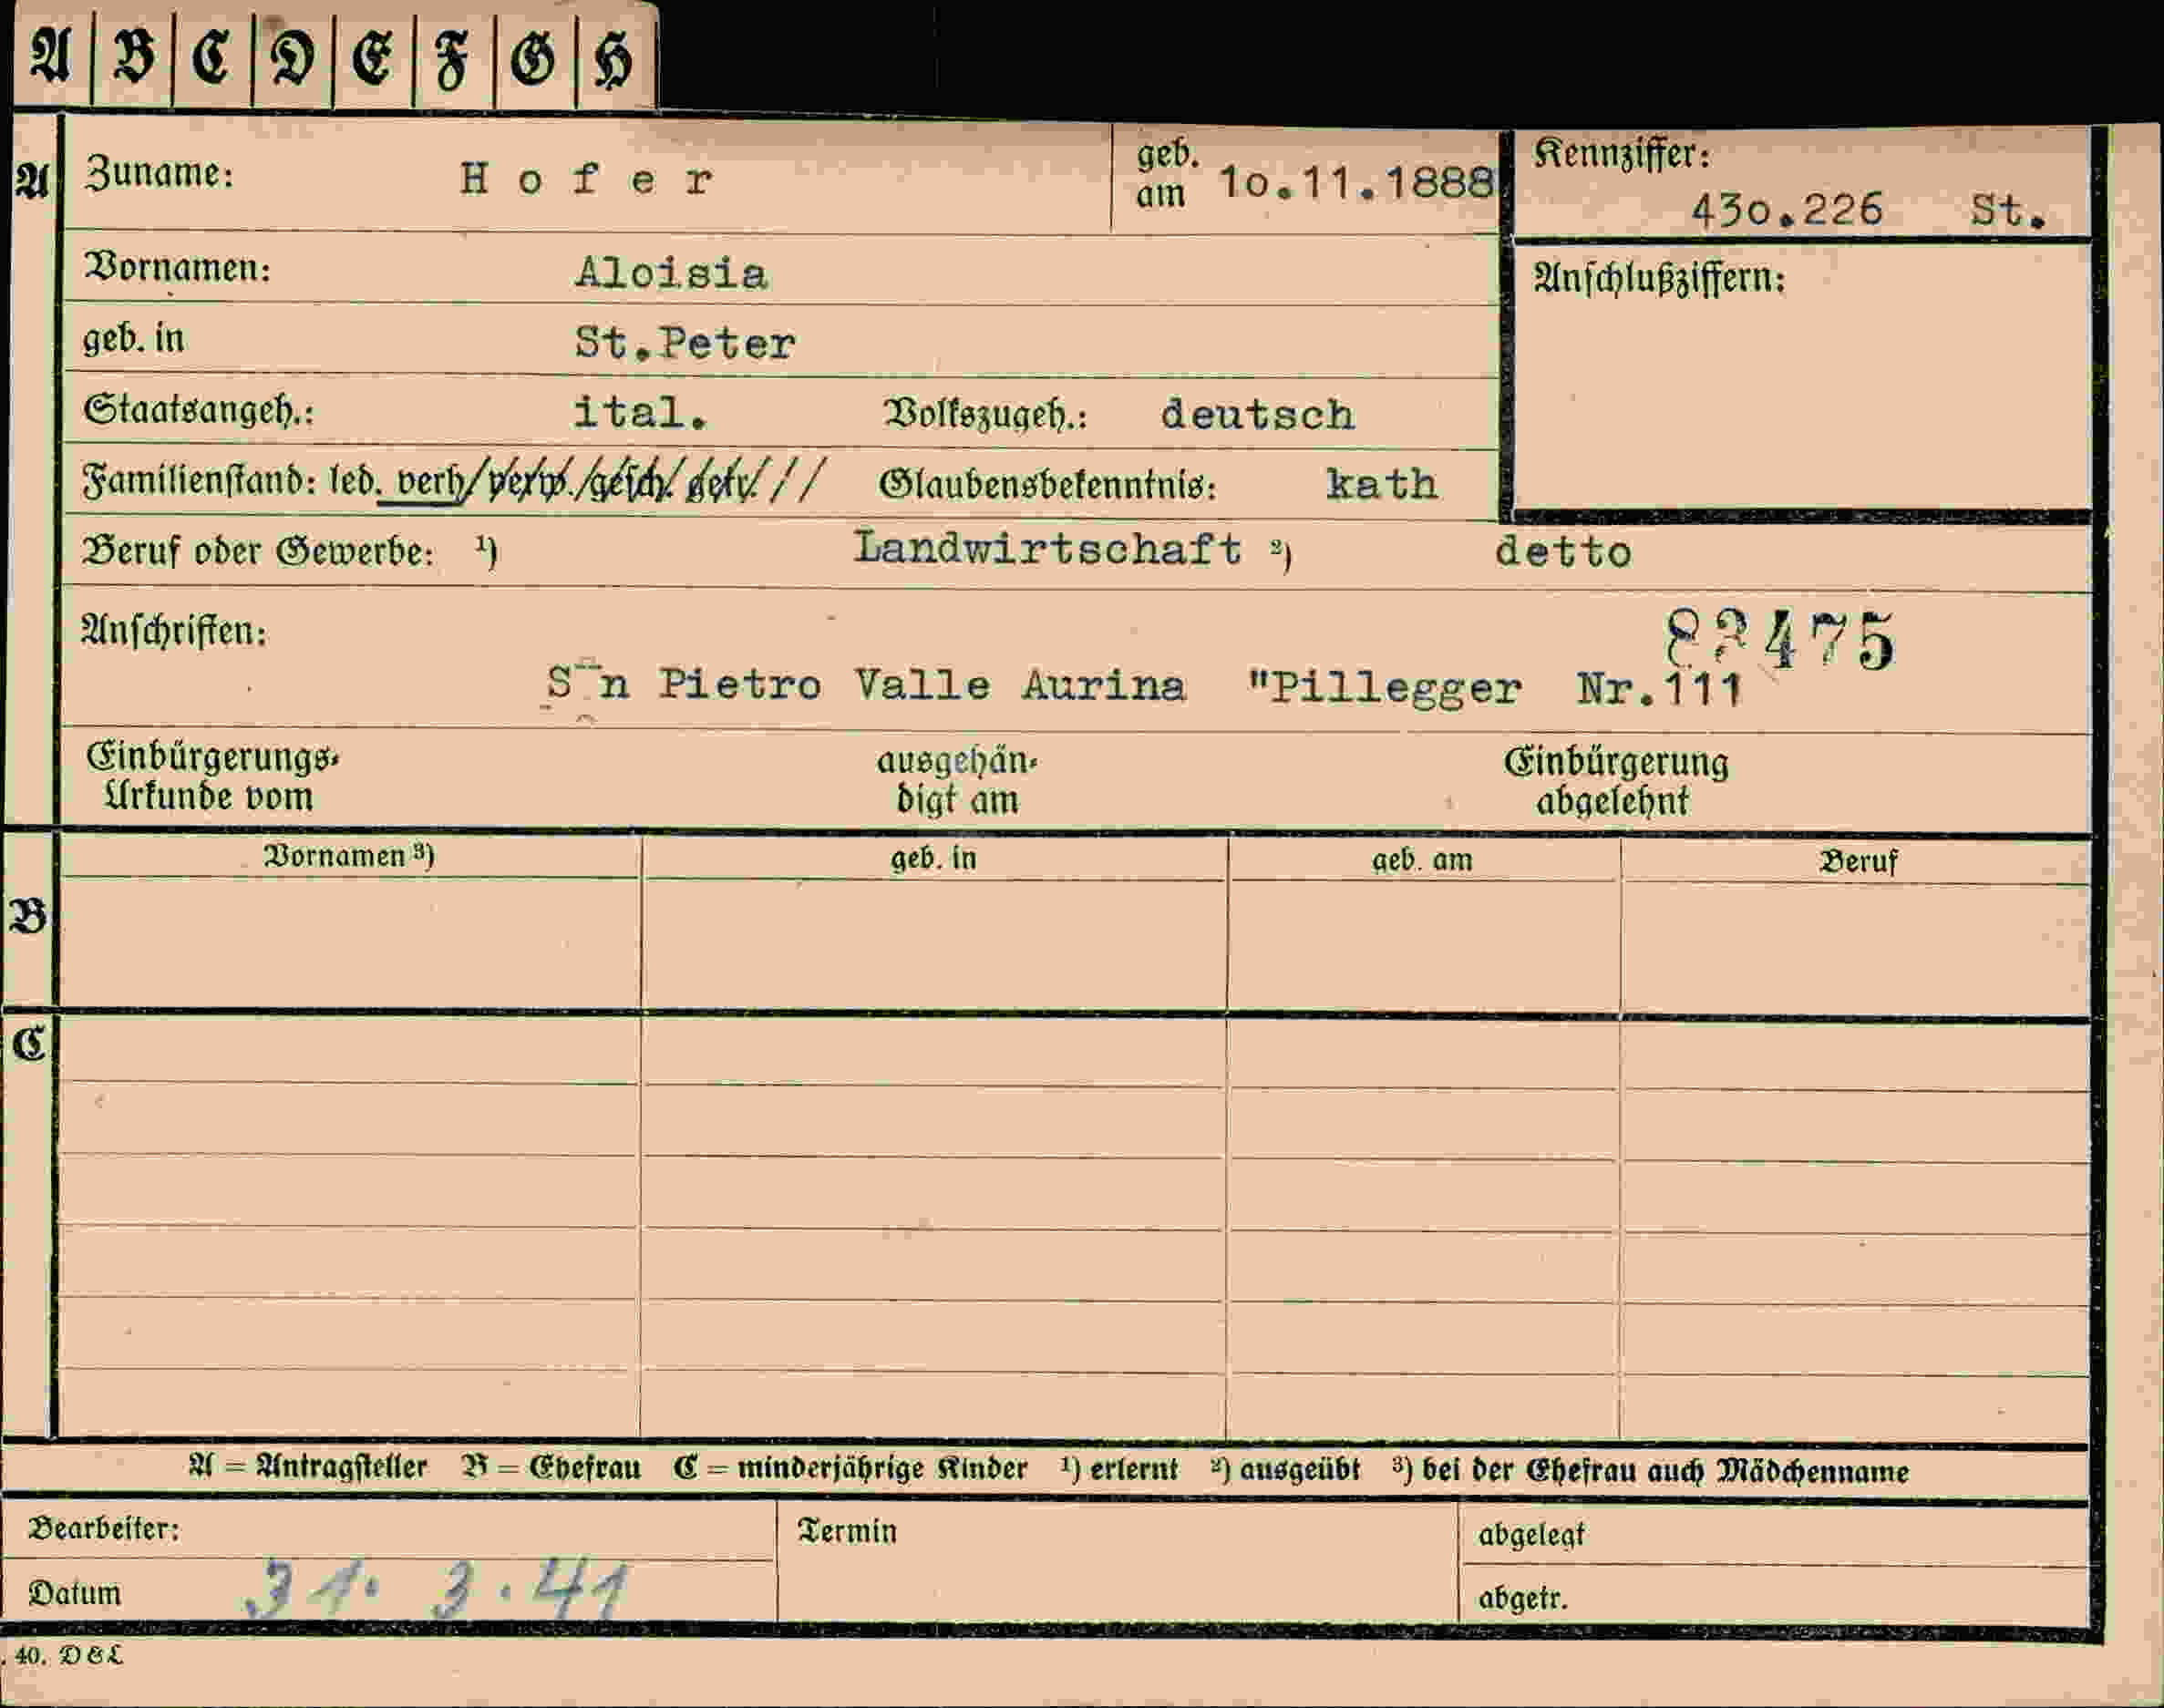 A B C D E F G H
A Zuname: Hofer geb. am 10.11.1888 Kennziffer: 430.226 St.
Vornamen: Aloisia Anschlußziffern:
geb. in St.Peter
Staatsangeh.: ital. Volkszugeh.: deutsch
Familienstand: led. verh/verw./gesch. Glaubensbekenntnis: kath
Beruf oder Gewerbe: ¹) Landwirtschaft ²) detto
Anschriften: 82475
Pietro Valle Aurina "Pillegger Nr.111
Einbürgerungs- ausgehän- Einbürgerung
Urkunde vom digt am abgelehnt
Vornamen ³) geb. in geb. am Beruf
B
C
A = Antragsteller B = Ehefrau C = minderjährige Kinder ¹) erlernt ²) ausgeübt ³) bei der Ehefrau auch Mädchenname
Bearbeiter: Termin abgelegt
Datum 31. 3. 41 abgetr.
40. D&L